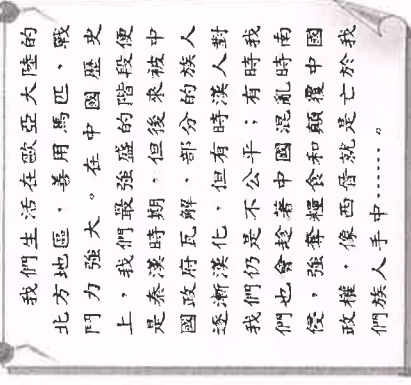 我們生活在歐亞大陸的
北方地區，善用馬匹，戰
鬥力強大。在中國歷史
上，我們最強盛的階段便
是秦漢時期，但後來被中
國政府瓦解，部分的族人
逐漸漢化，但有時漢人對
我們仍是不公平；有時我
們也會趁著中國混亂時南
侵，強奪糧食和顛覆中國
政權，像西晉就是亡於我
們族人手中……。